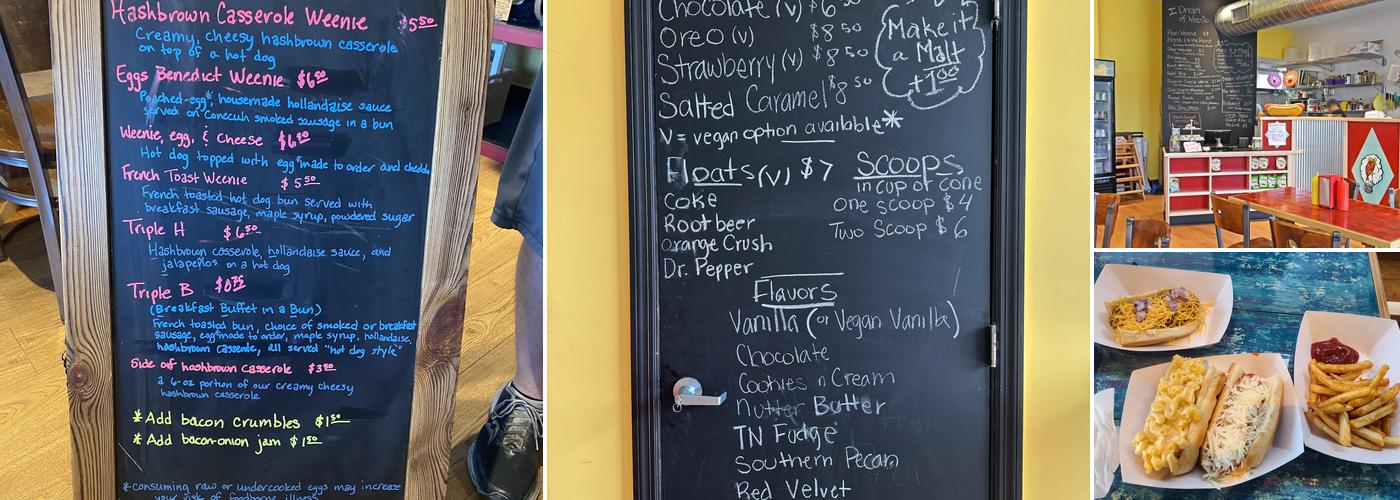 Hashbrown Casserole Weenie $5⁵⁰
Creamy, cheesy hashbrown casserole
on top of a hot dog
Eggs Benedict Weenie $6⁵⁰
Poached egg*, housemade hollandaise sauce
served on Conecuh smoked sausage in a bun
Weenie, egg, & Cheese
Hot dog topped with egg*made to order and chedda
French Toast Weenie $5⁵⁰
French toasted hot dog bun served with
breakfast sausage, maple syrup, powdered sugar
Triple H $6⁵⁰
Hashbrown casserole, hollandaise sauce, and
jalapeños on a hot dog
Triple B $8⁷⁵
(Breakfast Buffet in a Bun)
French toasted bun, choice of smoked or breakfast
sausage, egg*made to order, maple syrup, hollandaise,
hashbrown casserole, all served "hot dog style"
Side of hashbrown casserole $3⁵⁰
a 6-oz portion of our creamy cheesy
hashbrown casserole
*Add bacon crumbles $1⁵⁰
*Add bacon-onion jam $1⁵⁰
*consuming raw or undercooked eggs may increase
your risk of foodborne illness
Chocolate (v) $6⁵⁰
Oreo (v) $8⁵⁰
Strawberry (v) $8⁵⁰
Salted Caramel $8⁵⁰
Make it
a Malt
+1⁰⁰
V= vegan option available*
Floats (v) $7
Coke
Root beer
Orange Crush
Dr. Pepper
Scoops
in cup or cone
one scoop $4
Two Scoop $6
Flavors
Vanilla (or Vegan Vanilla)
Chocolate
Cookies n Cream
Nutter Butter
TN Fudge
Southern Pecan
Red Velvet
I Dream
of Weenie